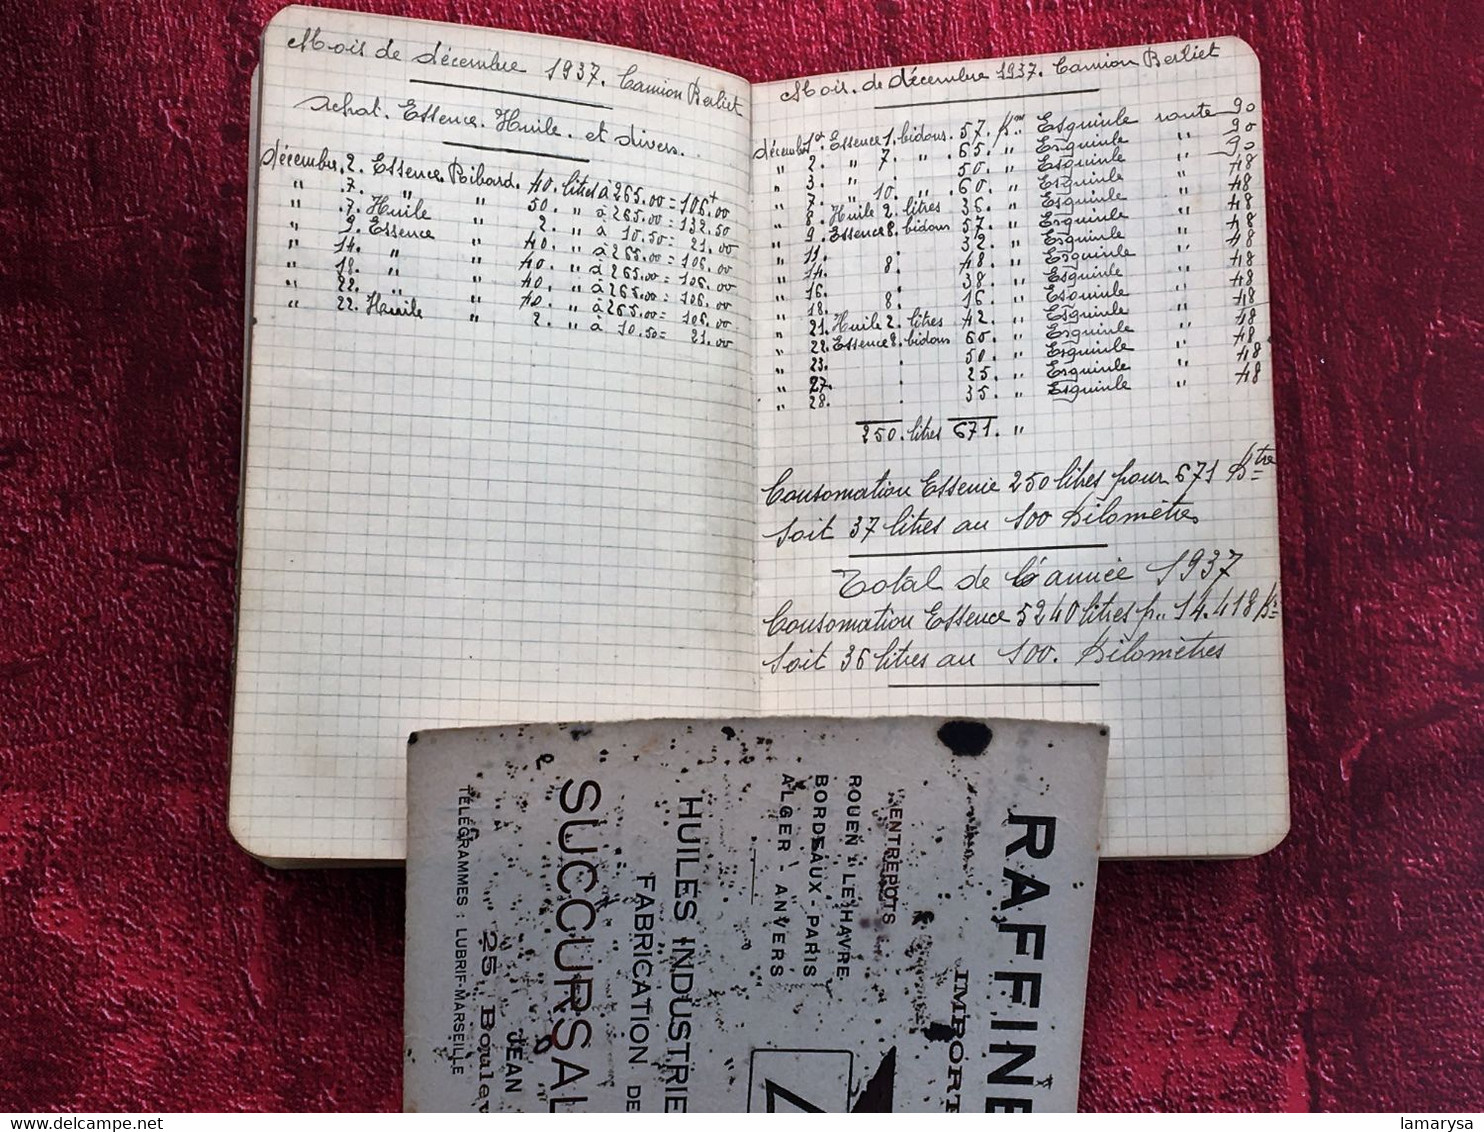 Mois de décembre 1937. Camion Berliet
Achat. Essence. Huile. et divers.
décembre. 2. Essence. Ribard. 40. litres à 265.00 = 106.00
" 7. " " 50. " à 265.00 = 132.50
" 7. Huile " 2. " à 10.50 = 21.00
" 9. Essence " 40. " à 265.00 = 106.00
" 14. " " 40. " à 265.00 = 106.00
" 18. " " 40. " à 265.00 = 106.00
" 22. " " 40. " à 265.00 = 106.00
" 22. Huile " 2. " à 10.50 = 21.00
Mois. de décembre 1937. Camion Berliet
décembre 1er Essence 1. bidons. 57. Km Esquinle route 90
" 2. " 7. " 65. " Esquinle " 90
" 3. " 50. " Esquinle " 90
" 7. " 10. " 60. " Esquinle " 48
" 8. Huile 2. litres 36. " Esquinle " 48
" 9. Essence 8. bidons 57. " Esquinle " 48
" 11. 32. " Esquinle " 48
" 14. 8. 48. " Esquinle " 48
" 16. 38. " Esquinle " 48
" 18. 8. 16. " Esquinle " 48
" 21. Huile 2. litres 42. " Esquinle " 48
" 22. Essence 8. bidons 60. " Esquinle " 48
" 23. 50. " Esquinle " 48
" 27. 25. " Esquinle " 48
" 28. 35. " Esquinle " 48
250. litres 671. "
Consomation Essence 250 litres pour 671 Ktre
Soit 37 litres au 100 Kilomètres
Total de l'année 1937
Consomation Essence 5240 litres p.. 14.418 K=
Soit 36 litres au 100. Kilomètres
RAFFINE
IMPORT
ENTREPOTS
ROUEN - LE HAVRE
BORDEAUX - PARIS
ALGER - ANVERS
HUILES INDUSTRIE
FABRICATION DE
SUCCURSAL
JEAN
25, Boulev
TÉLÉGRAMMES : LUBRIF-MARSEILLE
lamarysa